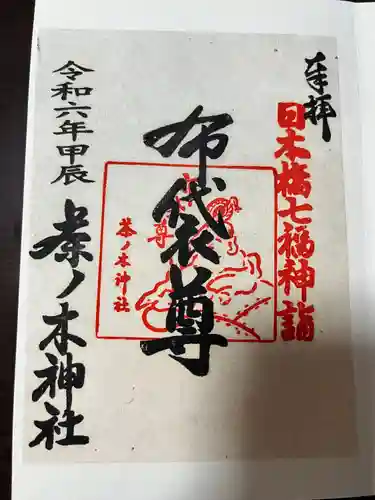 奉拝
日本橋七福神詣
布袋尊
布袋尊
茶ノ木神社
令和六年甲辰
茶ノ木神社